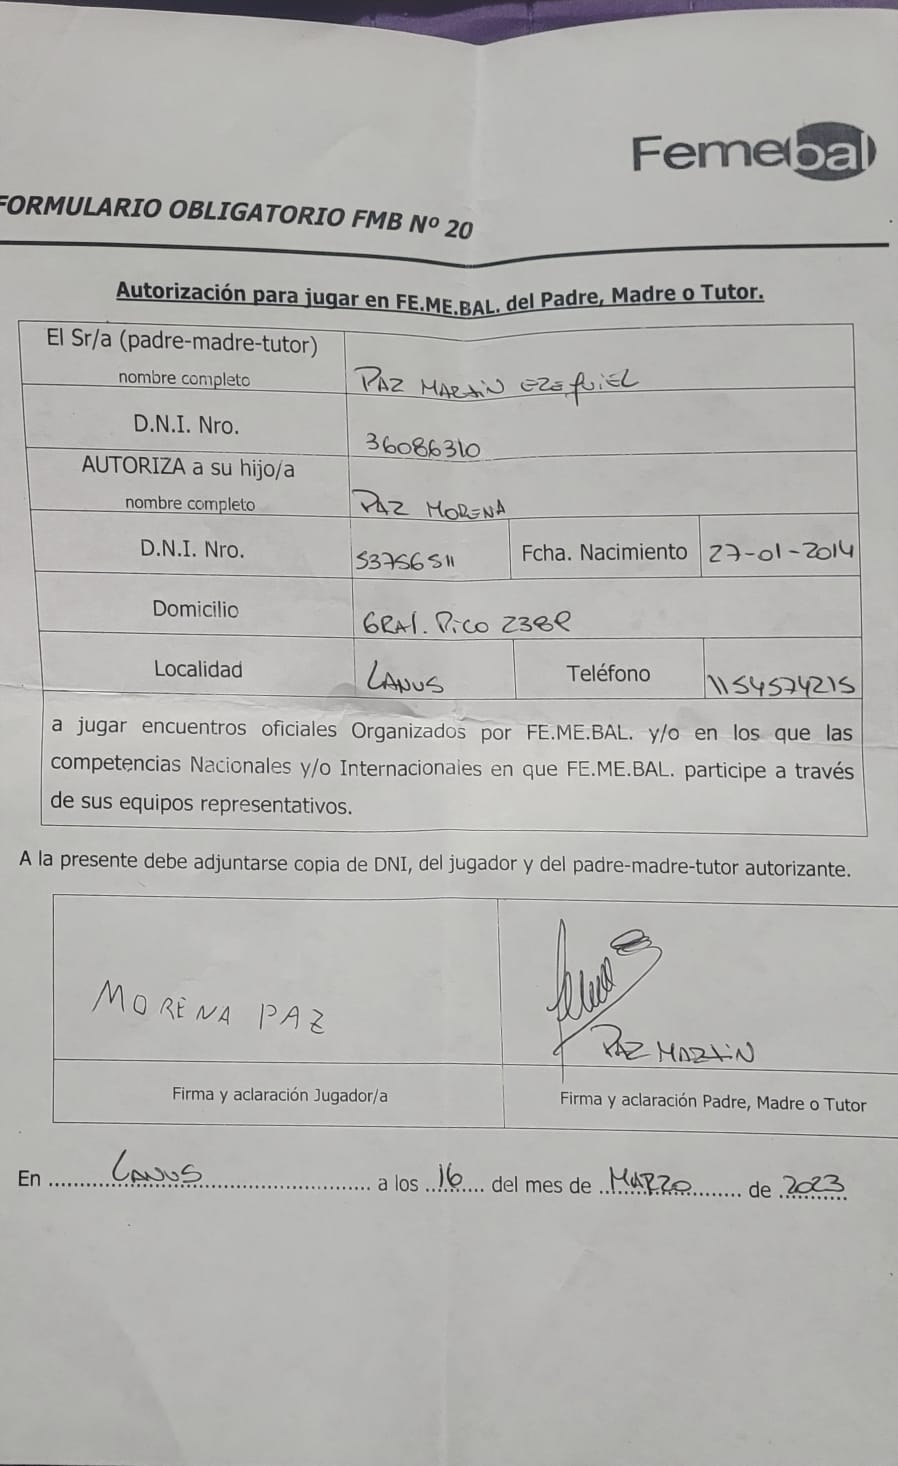 Femebal
FORMULARIO OBLIGATORIO FMB Nº 20
Autorización para jugar en FE.ME.BAL. del Padre, Madre o Tutor.
El Sr/a (padre-madre-tutor)
nombre completo PAZ MARTIN EZEQUIEL
D.N.I. Nro. 36086310
AUTORIZA a su hijo/a
nombre completo PAZ MORENA
D.N.I. Nro. 53756511 Fcha. Nacimiento 27-01-2014
Domicilio GRAL. PICO 2388
Localidad LANUS Teléfono 1154574215
a jugar encuentros oficiales Organizados por FE.ME.BAL. y/o en los que las
competencias Nacionales y/o Internacionales en que FE.ME.BAL. participe a través
de sus equipos representativos.
A la presente debe adjuntarse copia de DNI, del jugador y del padre-madre-tutor autorizante.
MORENA PAZ
PAZ MARTIN
Firma y aclaración Jugador/a Firma y aclaración Padre, Madre o Tutor
En LANUS a los 16 del mes de MARZO de 2023